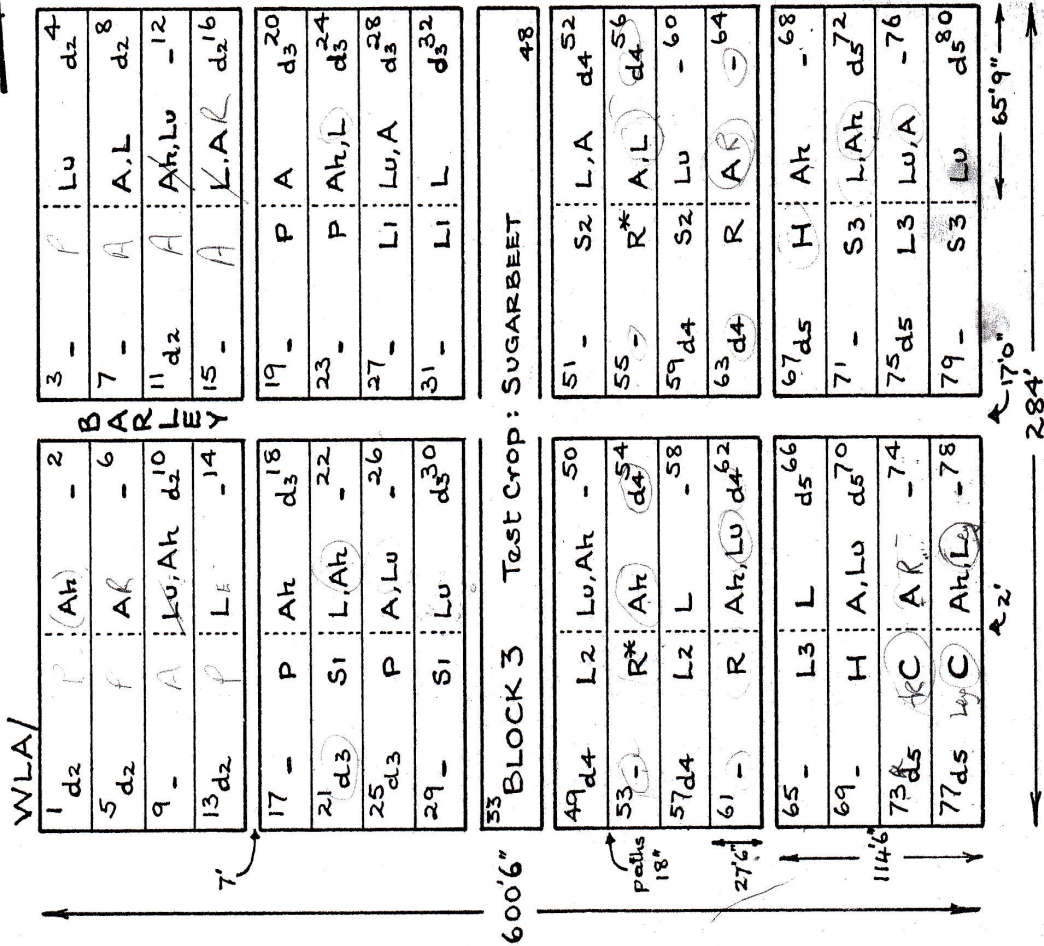 WLA/
1 d2 P (Ah) - 2
5 d2 P AR - 6
9 - A Lu, Ah d2 10
13 d2 P L - 14
BARLEY
3 - P Lu d2 4
7 - A A, L d2 8
11 d2 A Ah, Lu - 12
15 - A L, AR d2 16
7'
17 - P Ah d3 18
21 d3 S1 L, Ah - 22
25 d3 P A, Lu - 26
29 - S1 Lu d3 30
19 - P A d3 20
23 - P Ah, L d3 24
27 - L1 Lu, A d3 28
31 - L1 L d3 32
600'6"
33 BLOCK 3 Test Crop: SUGARBEET 48
49 d4 L2 Lu, Ah - 50
53 - R* Ah d4 54
57 d4 L2 L - 58
61 - R Ah, Lu d4 62
51 - S2 L, A d4 52
55 - R* A, L d4 56
59 d4 S2 Lu - 60
63 d4 R AR - 64
paths 18"
27'6"
65 - L3 L d5 66
69 - H A, Lu d5 70
73 d5 R C AR - 74
77 d5 Ley C Ah, Ley - 78
67 d5 H Ah - 68
71 - S3 L, Ah d5 72
75 d5 L3 Lu, A - 76
79 - S3 Lu d5 80
114'6"
2'
17'0"
65'9"
284'